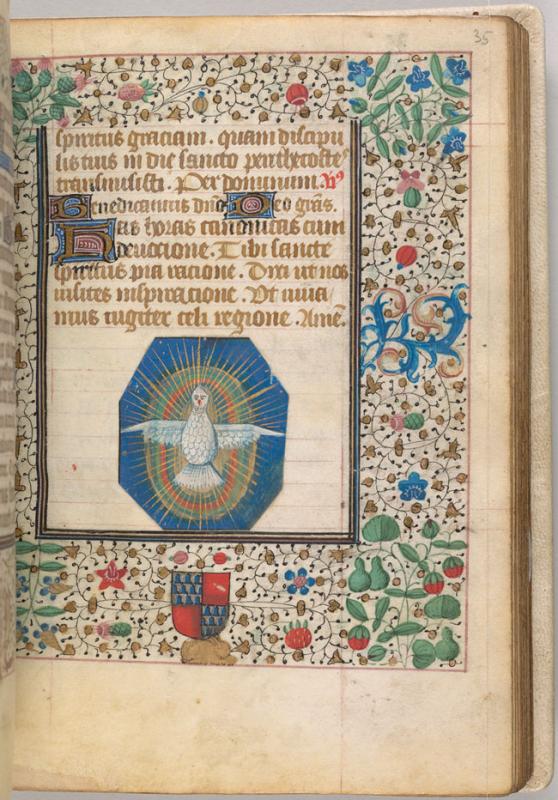 35
spiritus graciam. quam discipu
lis tuis in die sancto penthecoste
transmisisti. Per dominum. V9
Benedicamus dño Deo grãs.
Has horas canonicas cum
deuocione. Tibi sancte
spiritus pia racione. Dixi ut nos
uisites inspiracione. Vt uiua
mus iugiter celi regione. Amẽ.